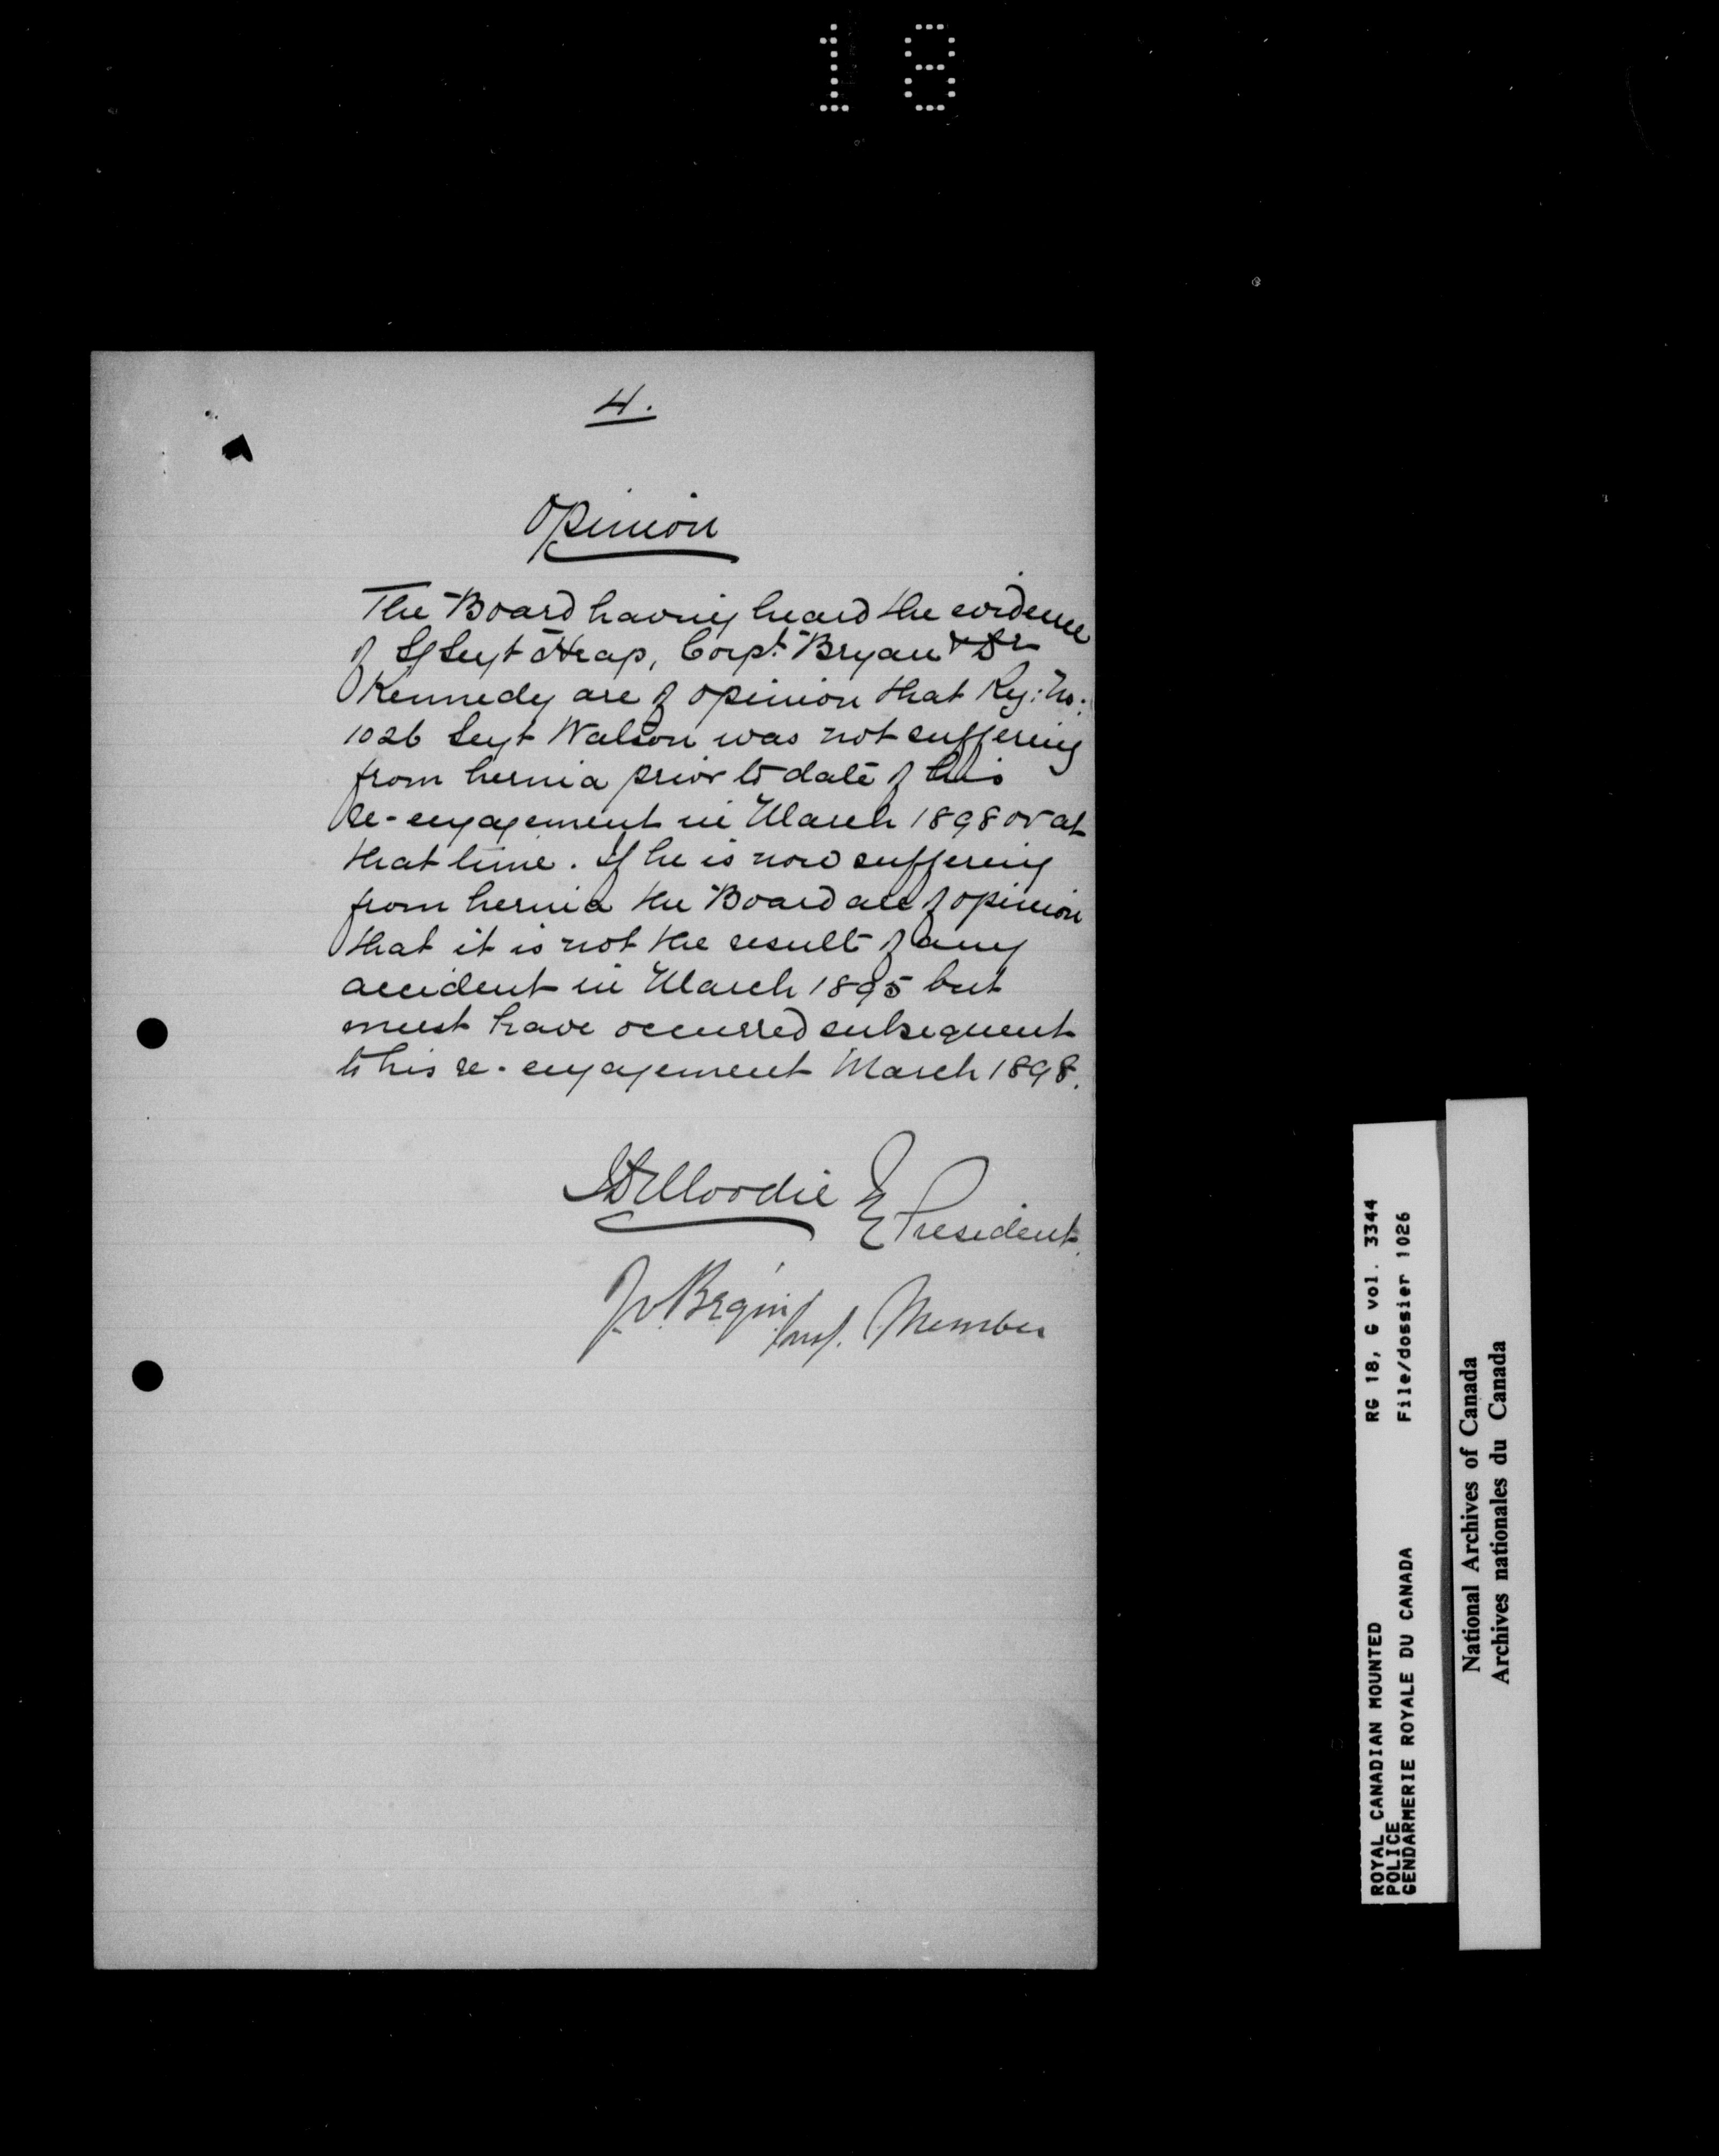 18
4.
Opinion
The Board having heard the evidence
of S/Sergt Heap, Corpt. Bryan & Dr
Kennedy are of opinion that Reg: No:
1026 Sergt Watson was not suffering
from hernia prior to date of his
re-engagement in March 1898 or at
that time. If he is now suffering
from hernia the Board are of opinion
that it is not the result of any
accident in March 1895 but
must have occurred subsequent
to his re-engagement March 1898.
JDMoodie
President.
Jv Begin Insp. Member
ROYAL CANADIAN MOUNTED RG 18, G vol. 3344
POLICE
GENDARMERIE ROYALE DU CANADA File/dossier 1026
National Archives of Canada
Archives nationales du Canada